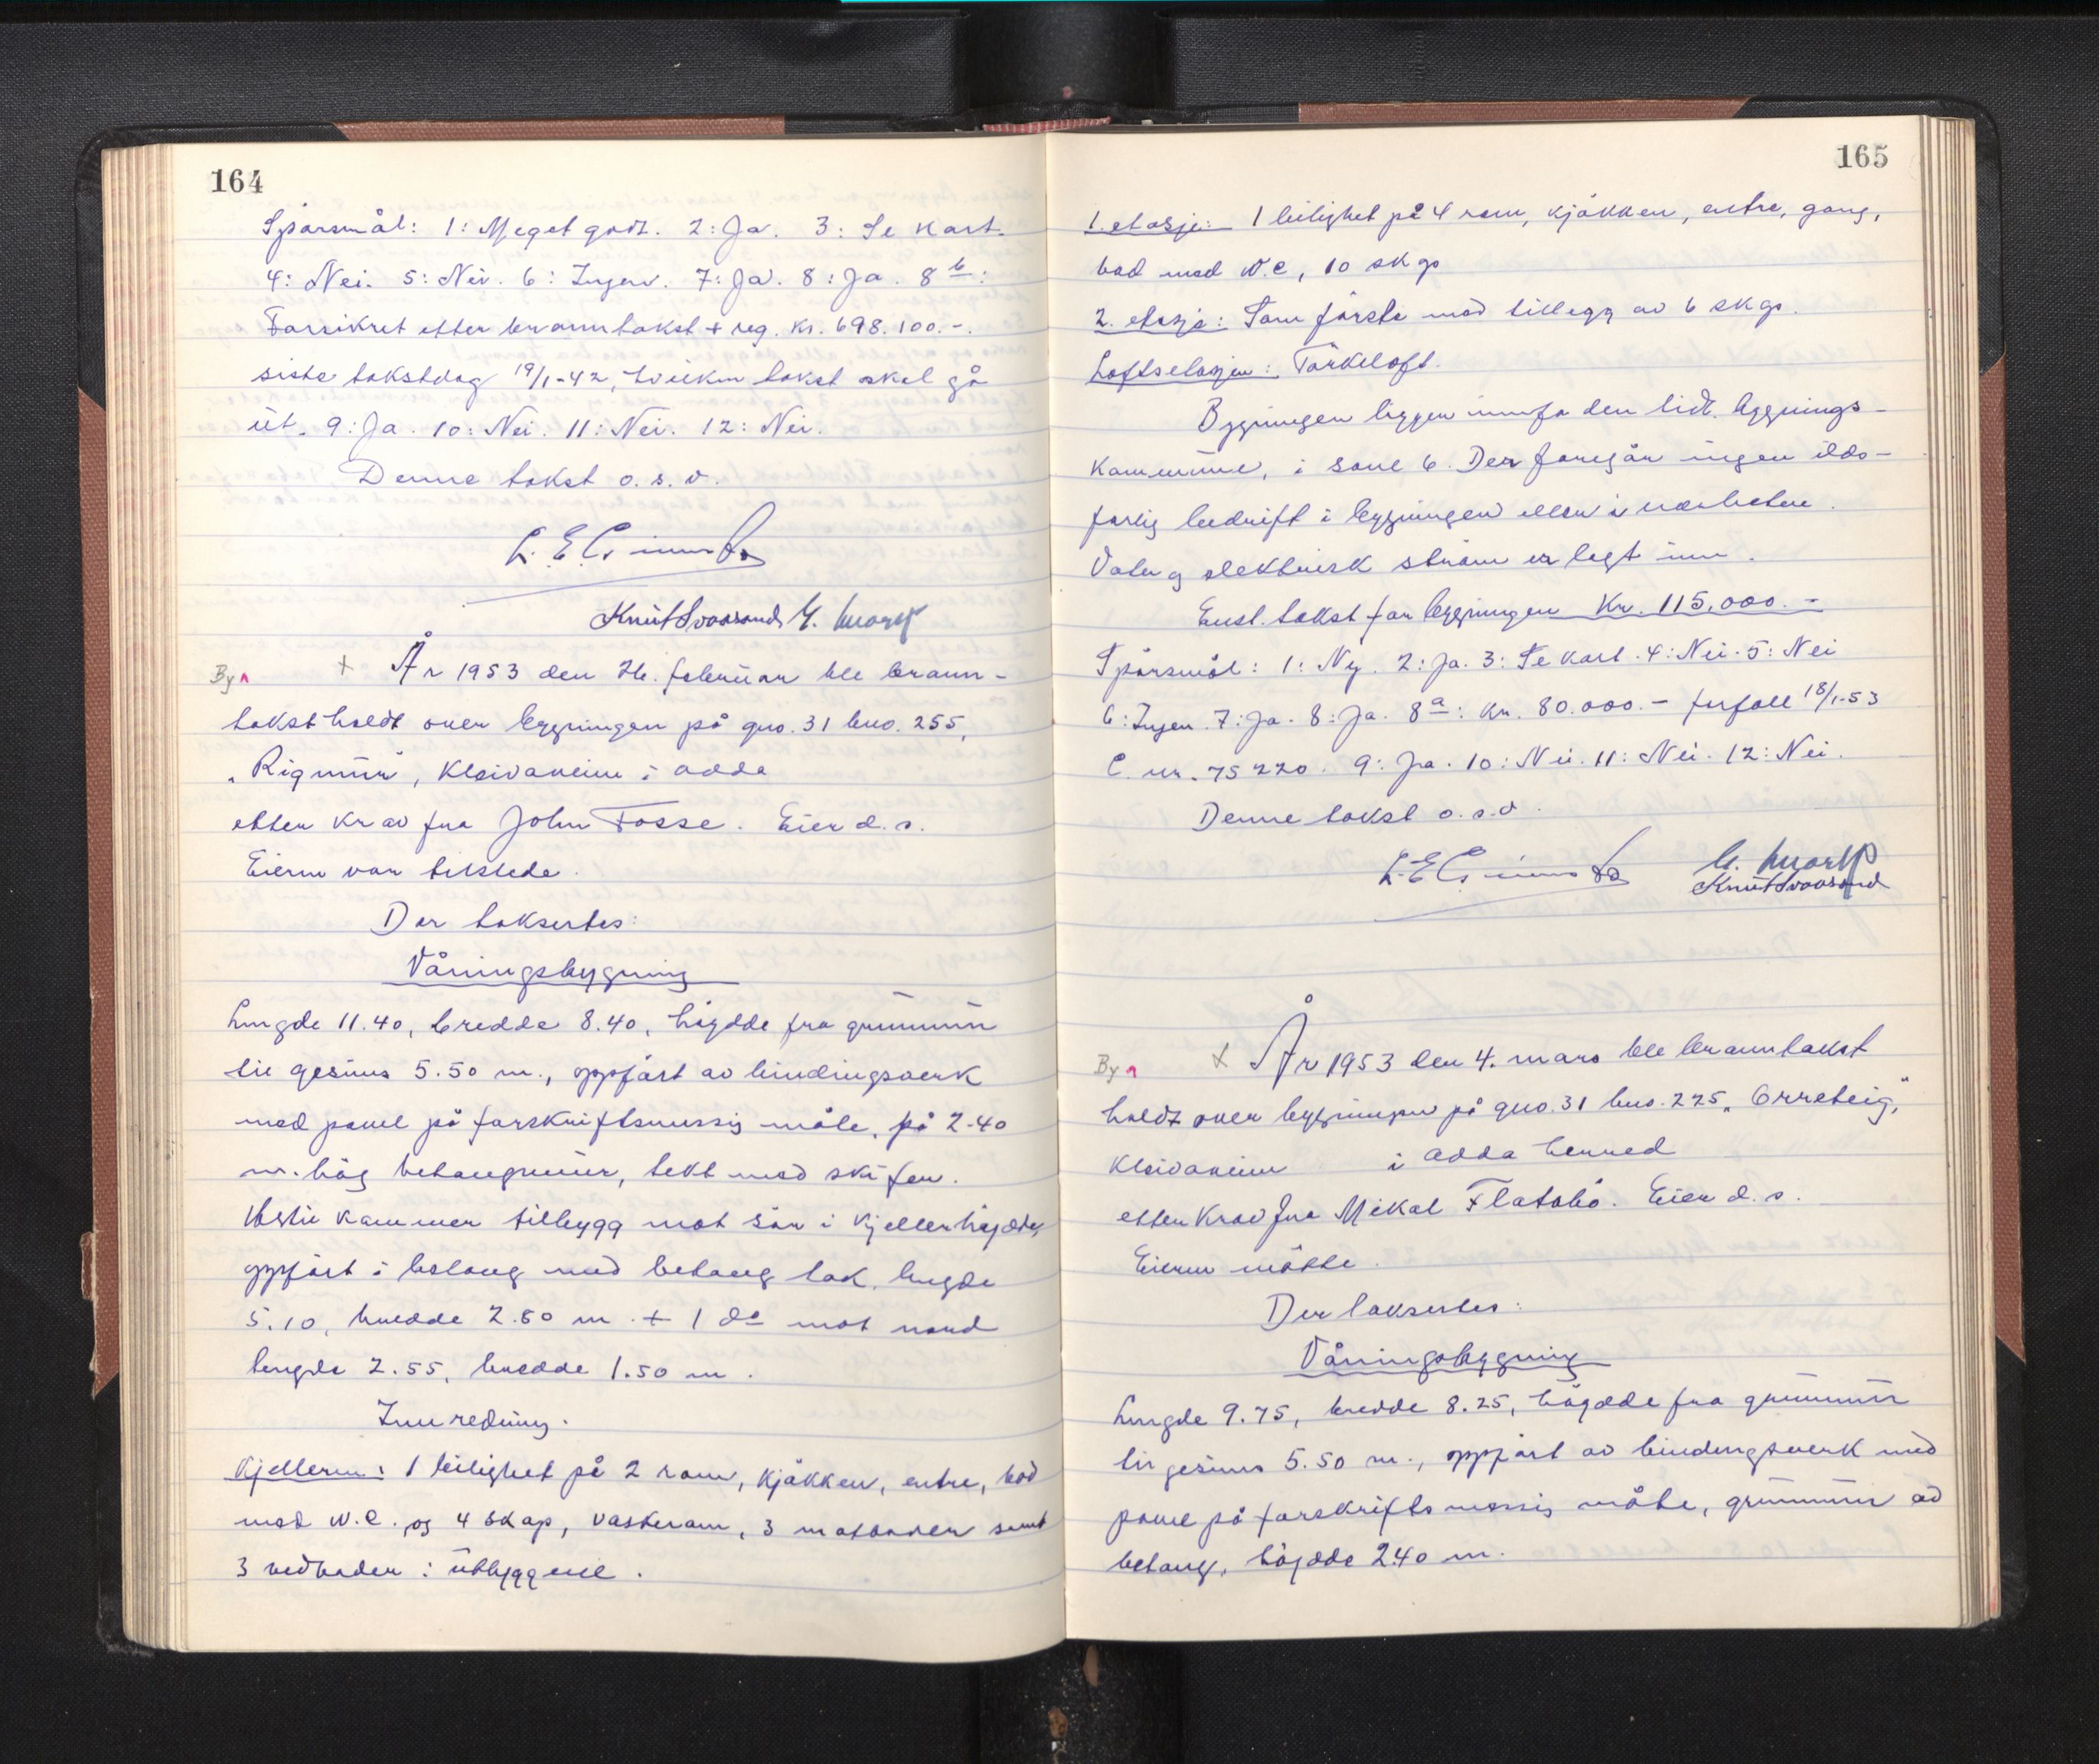 164
Spörsmål: 1: Meget godt. 2: Ja. 3: Se kart.
4: Nei. 5: Nei. 6: Ingen. 7: Ja. 8: Ja. 8 b:
Forsikret etter branntakst + reg. kr. 698.100.-.
siste takstdag 19/1-42, hvilken takst skal gå
ut. 9: Ja. 10: Nei. 11: Nei. 12: Nei.
Denne takst o. s. v.
Knut Svaasand
By
+ År 1953 den 26. februar ble brann-
takst holdt over bygningen på gno. 31 bno. 255,
„Rigmur", Kleivaneim i Odda
etter krav fra John Fosse. Eier d. s.
Eieren var tilstede.
Der taksertes:
Våningsbygning
Lengde 11.40, bredde 8.40, höydde fra grunnmur
til gesims 5.50 m., oppfört av bindingsverk
med panel på forskriftsmessig måte, på 2.40
m. hög betongmur, tekt med skifer.
kommer tilbygg mot sör i kjellerhöydde,
oppfört i betong med betong tak. lengde
5.10, bredde 2.80 m. + 1 do mot nord
lengde 2.55, bredde 1.50 m.
Innredning.
Kjelleren: 1 leilighet på 2 rom, kjökken, entre, bad
med W.C. og 4 skap, vaskerom, 3 matboder samt
3 vedboder i utbyggene.
165
1. etasje: 1 leilighet på 4 rom, kjökken, entre, gang,
bad med W.C, 10 skap
2. etasje: Som förste med tillegg av 6 skap.
Loftsetasjen: Törkeloft.
Bygningen ligger innfor den tidl. bygnings-
kommune, i sone 6. Der foregår ingen ilds-
farlig bedrift i bygningen eller i nærheten.
Vatn og elektrisk ström er lagt inn.
Ensl. takst for bygningen Kr. 115.000.-
Spörsmål: 1: Ny. 2: Ja. 3: Se kart. 4: Nei. 5: Nei
6: Ingen. 7: Ja. 8: Ja. 8 a: kr. 80.000.- forfall 18/1-53
C. nr. 75220. 9: Ja. 10: Nei. 11: Nei. 12: Nei.
Denne takst o. s. v.
Knut Svaasand
By
+ År 1953 den 4. mars ble branntakst
holdt over bygningen på gno. 31 bno. 225 „Orreteig",
Kleivaneim i Odda herred
etter krav fra Mikal Flatabö. Eier d. s.
Eieren mötte.
Der taksertes:
Våningsbygning
Lengde 9.75, bredde 8.25, höydde fra grunnmur
til gesims 5.50 m., oppfört av bindingsverk med
panel på forskriftsmessig måte, grunnmur av
betong, höydde 2.40 m.